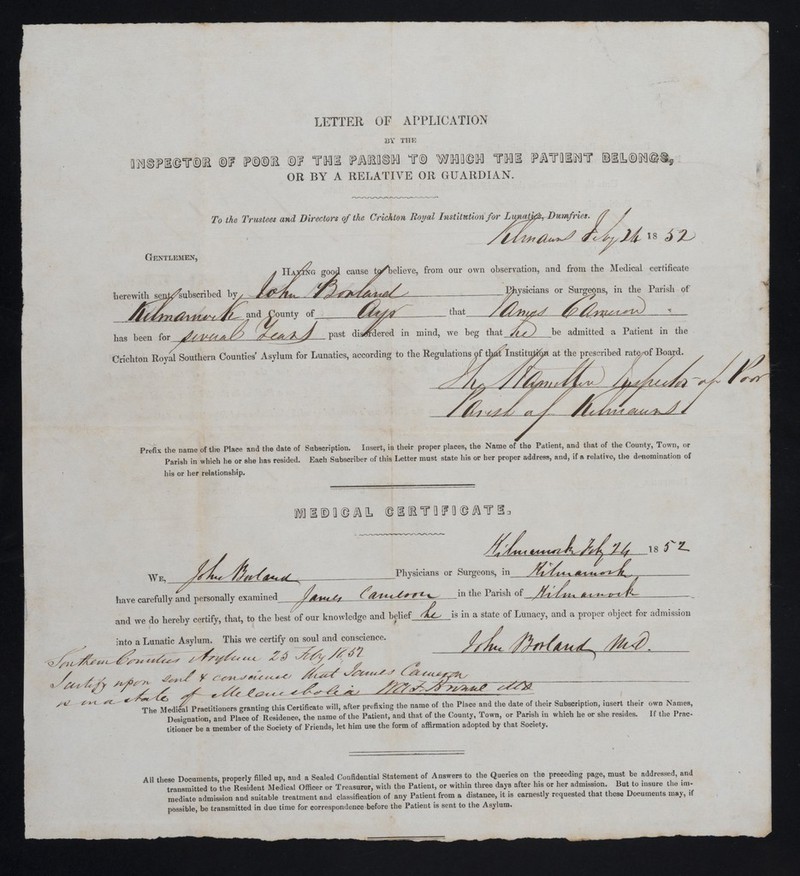 LETTER OF APPLICATION
BY THE
INSPECTOR OF POOR OF THE PARISH TO WHICH THE PATIENT BELONGS,
OR BY A RELATIVE OR GUARDIAN.
To the Trustees and Directors of the Crichton Royal Institution for Lunatics, Dumfries.
Kilmaurs Feby 24 1852
GENTLEMEN,
HAVING good cause to believe, from our own observation, and from the Medical certificate
herewith sent, subscribed by John Borland Physicians or Surgeons, in the Parish of
Kilmarnock and County of Ayr that James Cameron
has been for several Years past disordered in mind, we beg that he be admitted a Patient in the
Crichton Royal Southern Counties' Asylum for Lunatics, according to the Regulations of that Institution at the prescribed rate of Board.
Jno Hamilton Inspector of Poor
Parish of Kilmaurs
Prefix the name of the Place and the date of Subscription. Insert, in their proper places, the Name of the Patient, and that of the County, Town, or
Parish in which he or she has resided. Each Subscriber of this Letter must state his or her proper address, and, if a relative, the denomination of
his or her relationship.
MEDICAL CERTIFICATE.
Kilmarnock Feby 24 1852
WE, John Borland Physicians or Surgeons, in Kilmarnock
have carefully and personally examined James Cameron in the Parish of Kilmarnock
and we do hereby certify, that, to the best of our knowledge and belief he is in a state of Lunacy, and a proper object for admission
into a Lunatic Asylum. This we certify on soul and conscience.
John Borland M.D.
Southern Counties Asylum 25 Feby 1852
I certify upon soul & conscience that James Cameron
is in a state of Melancholia
The Medical Practitioners granting this Certificate will, after prefixing the name of the Place and the date of their Subscription, insert their own Names,
Designation, and Place of Residence, the name of the Patient, and that of the County, Town, or Parish in which he or she resides. If the Prac-
titioner be a member of the Society of Friends, let him use the form of affirmation adopted by that Society.
All these Documents, properly filled up, and a Sealed Confidential Statement of Answers to the Queries on the preceding page, must be addressed, and
transmitted to the Resident Medical Officer or Treasurer, with the Patient, or within three days after his or her admission. But to insure the im-
mediate admission and suitable treatment and classification of any Patient from a distance, it is earnestly requested that these Documents may, if
possible, be transmitted in due time for correspondence before the Patient is sent to the Asylum.